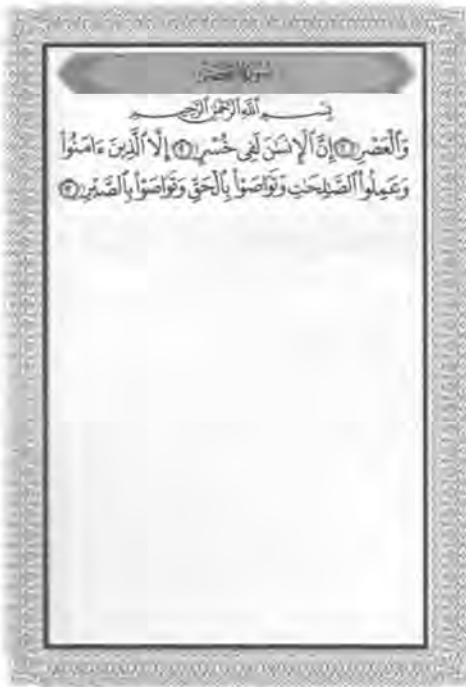 سورة العصر
بِسْمِ ٱللَّهِ ٱلرَّحْمَٰنِ ٱلرَّحِيمِ
وَٱلْعَصْرِ ۝١ إِنَّ ٱلْإِنسَٰنَ لَفِى خُسْرٍ ۝٢ إِلَّا ٱلَّذِينَ ءَامَنُوا۟
وَعَمِلُوا۟ ٱلصَّٰلِحَٰتِ وَتَوَاصَوْا۟ بِٱلْحَقِّ وَتَوَاصَوْا۟ بِٱلصَّبْرِ ۝٣